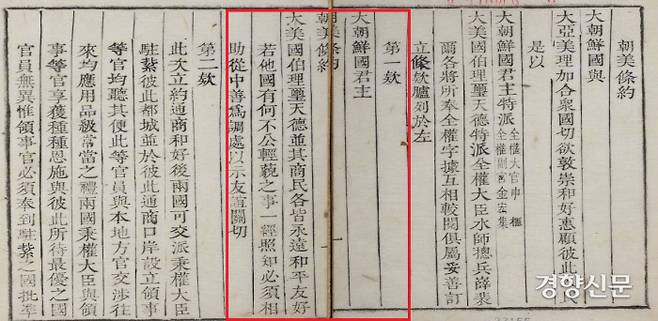 朝美條約
大朝鮮國與
大亞美理加合衆國切欲敦崇和好惠顧彼此
是以
大朝鮮國君主特派
全權大官申櫶
全權副官金宏集
大美國伯理璽天德特派全權大臣水師總兵薛裴
爾各將所奉全權字據互相較閱俱屬妥善訂
立條欵臚列於左
第一欵
大朝鮮國君主
朝美條約
大美國伯理璽天德並其商民各皆永遠和平友好
若他國有何不公輕藐之事一經照知必須相
助從中善爲調處以示友誼關切
第二欵
此次立約通商和好後兩國可交派秉權大臣
駐紮彼此都城並於彼此通商口岸設立領事
等官均聽其便此等官員與本地方官交涉往
來均應用品級相當之禮兩國秉權大臣與領
事等官享獲種種恩施與彼此所待最優之國
官員無異惟領事官必須奉到駐紮之國批準
경향신문